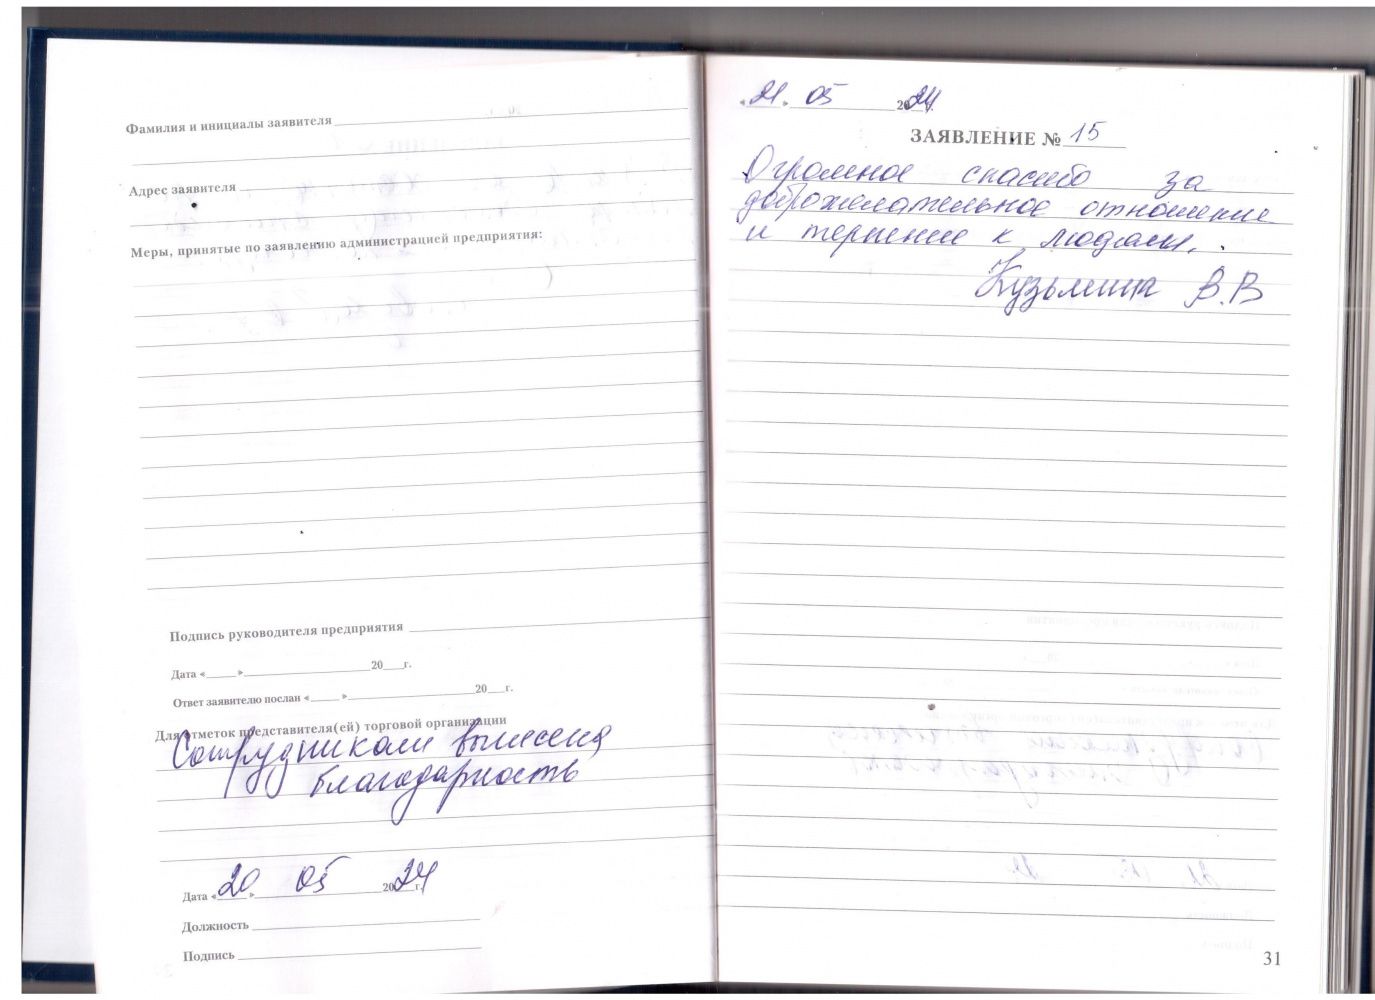 Фамилия и инициалы заявителя
Адрес заявителя
Меры, принятые по заявлению администрацией предприятия:
Подпись руководителя предприятия
Дата « » 20 г.
Ответ заявителю послан « » 20 г.
Для отметок представителя(ей) торговой организации
Сотрудникам вынесена
благодарность
Дата «20» 05 2024 г.
Должность
Подпись
«21» 05 2024 г.
ЗАЯВЛЕНИЕ № 15
Огромное спасибо за
доброжелательное отношение
и терпение к людям.
Кузьмина В.В
31